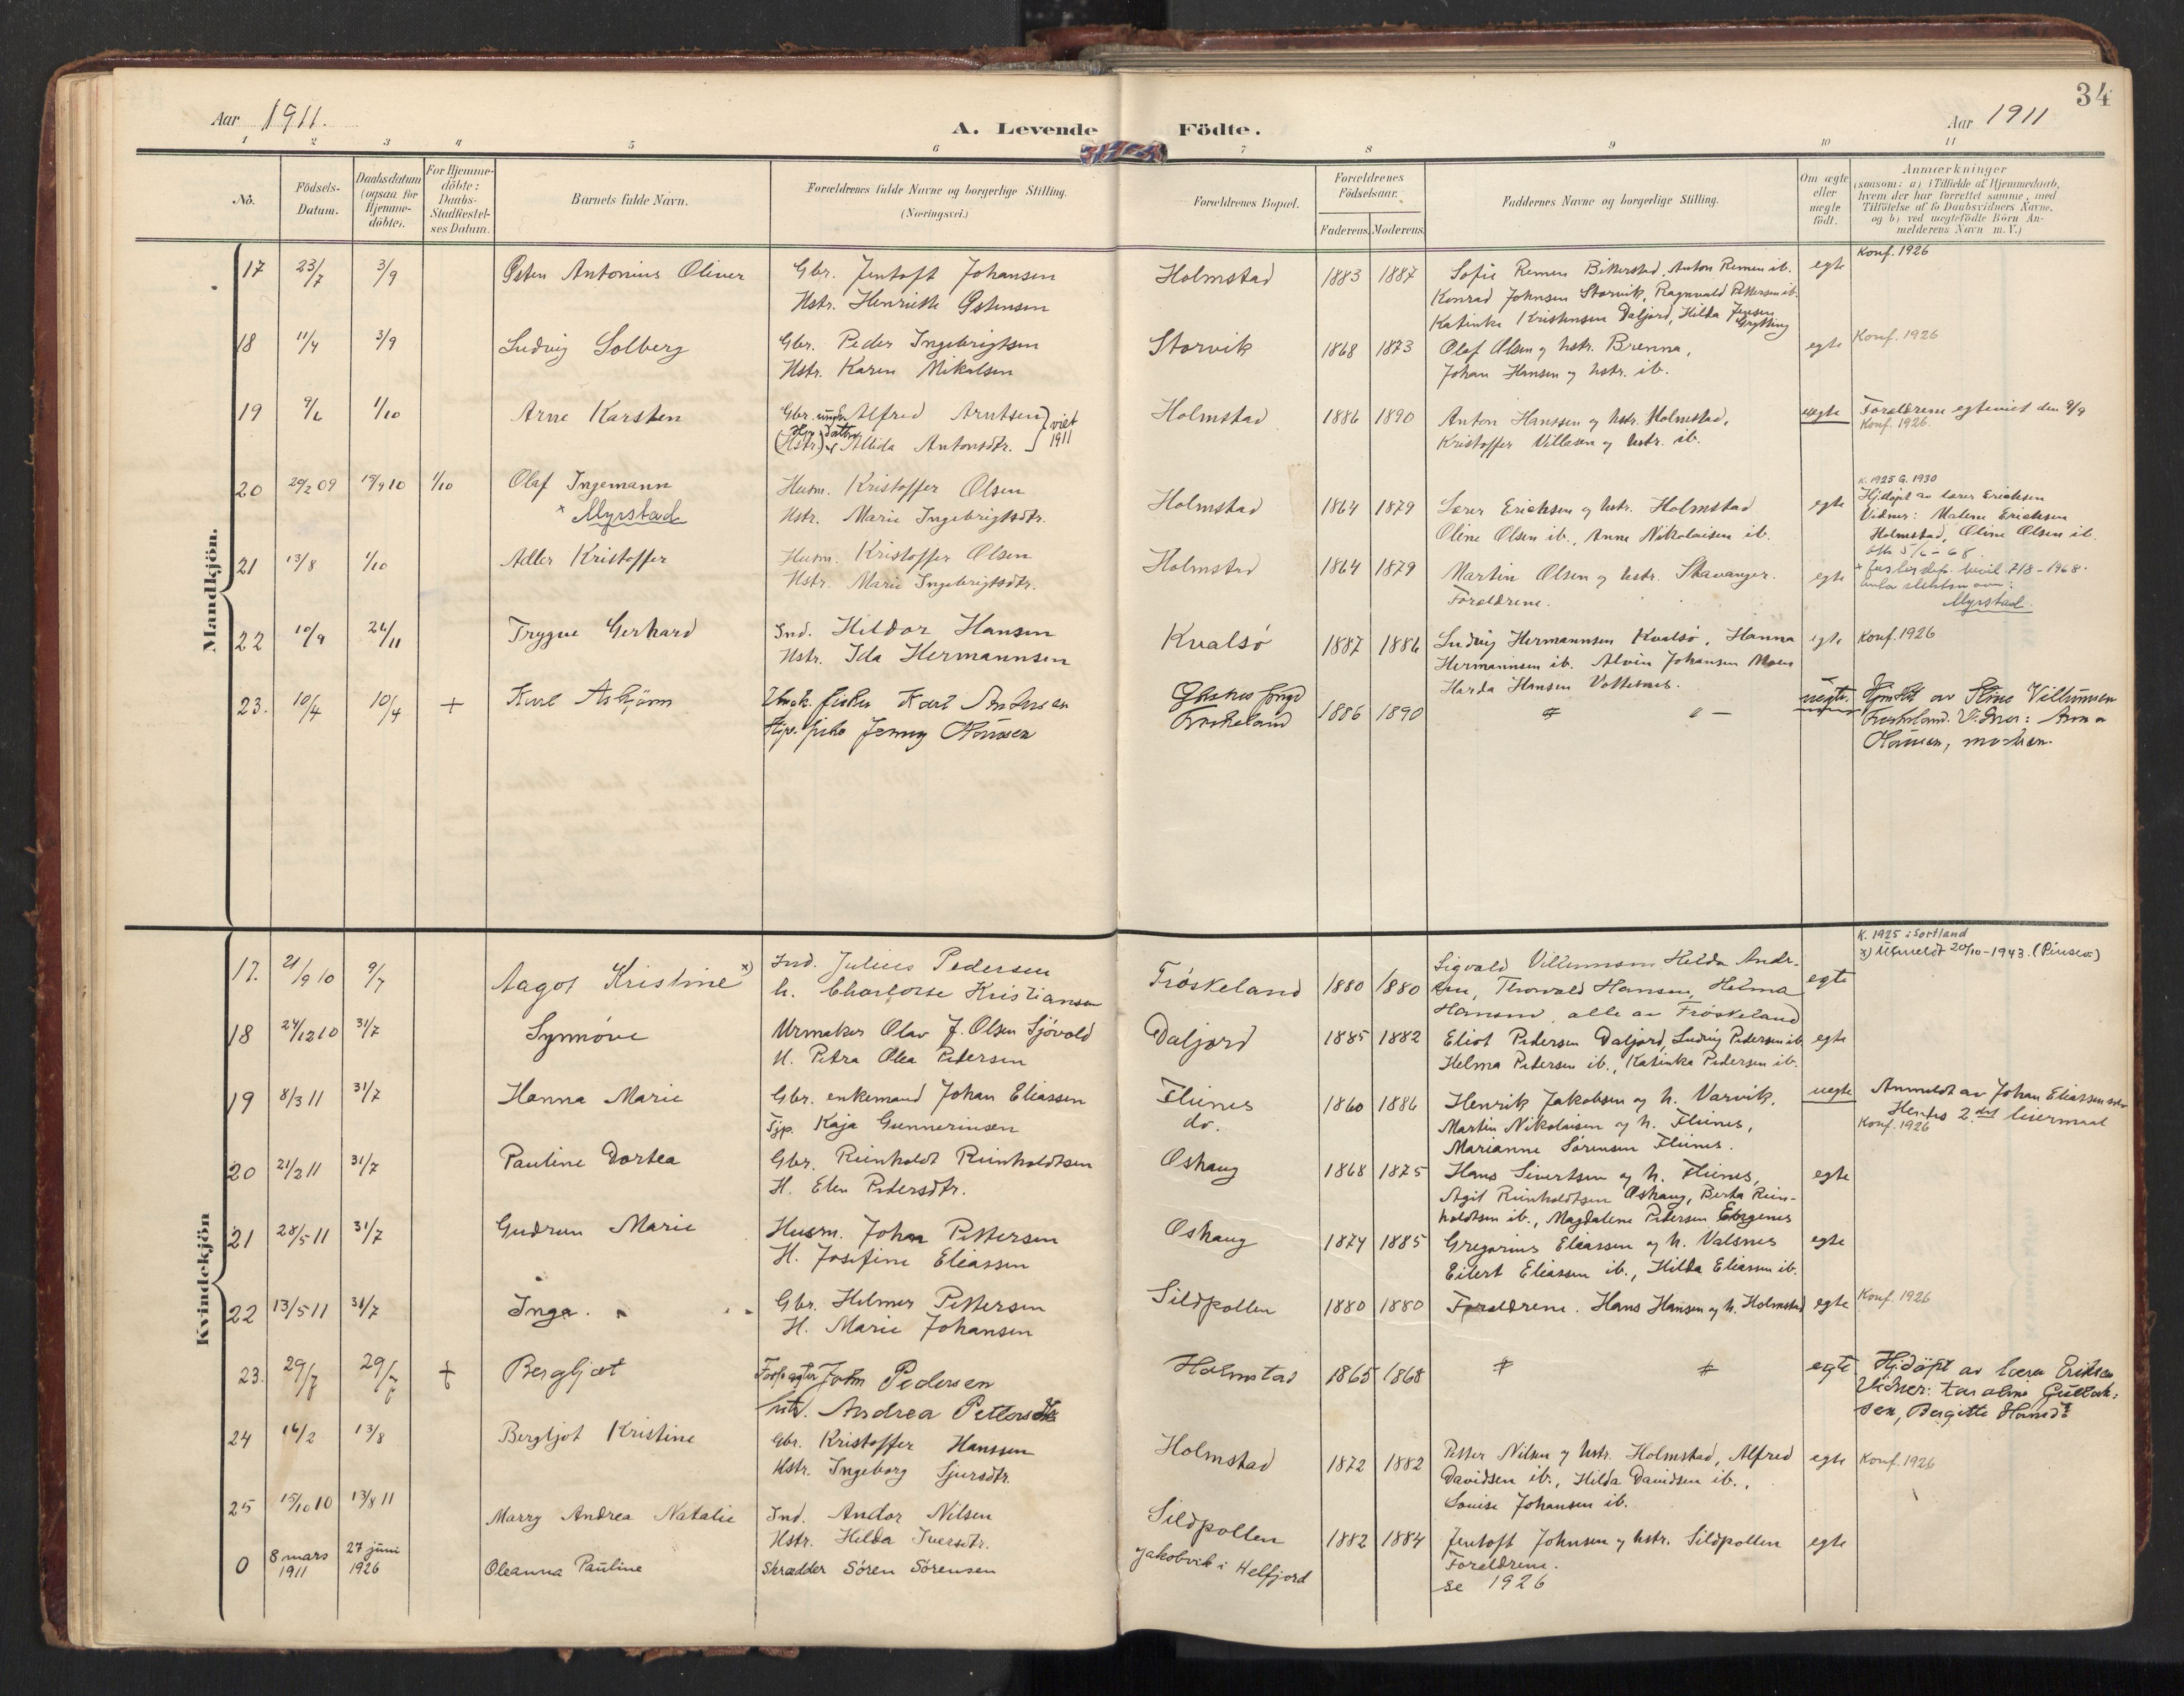 34
Aar 1911.
A. Levende Födte.
Aar 1911
1 2 3 4 5 6 7 8 9 10 11
No.
Födsels-Datum.
Daabsdatum (ogsaa for Hjemme-döbte).
For Hjemme-döbte: Daabs-Stadfæstel-ses Datum.
Barnets fulde Navn.
Forældrenes fulde Navne og borgerlige Stilling.
(Næringsvei.)
Forældrenes Bopæl.
Forældrenes Födselsaar.
Faderens. Moderens.
Faddernes Navne og borgerlige Stilling.
Om ægte eller uægte födt.
Anmærkninger
(saasom: a) i Tilfælde af Hjemmedaab, hvem der har forrettet samme, med Tilföielse af to Daabsvidners Navne, og b) ved uægtefödte Börn An-melderens Navn m. V.)
Mandkjön.
17 23/7 3/9 Østen Antonius Oliver Gbr. Jentoft Johansen Holmstad 1883 1887 Sofie Remen Bitterstad, Anton Remen ib. egte Konf. 1926
Hstr. Henriette Østensen Konrad Johnsen Storvik, Ragnvald Pettersen ib.
Katinka Kristensen Daljord, Hilda Jensen Grytting
18 11/4 3/9 Ludvig Solberg Gbr. Peder Ingebrigtsen Storvik 1868 1873 Olaf Olsen og hstr. Brenna, egte Konf. 1926
Hstr. Karen Mikalsen Johan Hansen og hstr. ib.
19 9/6 1/10 Arne Karsten Gbr. ungk. Alfred Arntsen viet 1911 Holmstad 1886 1890 Anton Hanssen og hstr. Holmstad, uegte Forældrene egteviet den 9/9
(Hstr.) Alida Antonsdtr. Kristoffer Villasen og hstr. ib. Konf. 1926.
20 20/2 09 18/9 10 1/10 Olaf Ingemann Husm. Kristoffer Olsen Holmstad 1864 1879 Lærer Erichsen og hstr. Holmstad egte K. 1925 G. 1930
x Myrstad Hstr. Marie Ingebrigtsdtr. Oline Olsen ib., Anne Nikolaisen ib. Hj.døpt av lærer Erichsen
Vidner: Malene Erichsen
Holmstad, Oline Olsen ib.
21 13/8 1/10 Adler Kristoffer Husm. Kristoffer Olsen Holmstad 1864 1879 Martin Olsen og hstr. Stavanger. egte 5/6-68.
Hstr. Marie Ingebrigtsdtr. Forældrene. bevil. 7/8-1968.
Myrstad.
22 10/9 26/11 Trygve Gerhard Ind. Hildor Hansen Kvalsø 1887 1886 Ludvig Hermannsen Kvalsø, Hanna egte Konf. 1926
Hstr. Ida Hermannsen Hermannsen ib. Alvin Johansen Moen
Harda Hansen
23. 10/4 10/4 + Karl Asbjørn Ungk. fisker Karl 1886 1890 uegte. Hjmdbt av Stine Villumsen
Jenny Hansen Frøskeland Frøskeland. Vidner: Anna
Hansen, moren.
Kvindekjön
17. 21/9 10 9/7 Aagot Kristine x) Ind. Julius Pedersen Frøskeland 1880 1880 Sigvald Villumsen Hilda Andr- egte K. 1925 i Sortland
h. Charlotte Kristiansen sen, Thorvald Hansen, Helma x) Utmeldt 20/10-1943. (Pinsev.)
Hansen, alle av Frøskeland
18 24/12 10 31/7 Synnøve Urmaker Olav J. Olsen Sjøvold Daljord 1885 1882 Eliot Pedersen Daljord, Ludvig Pedersen ib. egte
H. Petra Olea Petersen Helma Petersen ib., Katinka Pedersen ib.
19 8/3 11 31/7 Hanna Marie Gbr. enkemand Johan Eliassen Flines 1860 1886 Henrik Jakobsen og h. Varvik, uegte Anmeldt av Johan Eliassen selv
Tjp. Kaja Gunnerinsen do. Martin Nikolaisen og h. Flines, Hendes 2det leiermaal
Marianne Sørensen Flines. Konf. 1926
20 21/2 11 31/7 Pauline Dortea Gbr. Reinholdt Reinholdtsen Oshaug 1868 1875 Hans Sivertsen og h. Flines, egte
H. Elen Petersdtr. Agit Reinholdtsen Oshaug, Berta Rein-
holdtsen ib., Magdalene Petersen
21 28/5 11 31/7 Gudrun Marie Husm. Johan Pettersen Oshaug 1874 1885 Gregorius Eliassen og h. Valsnes egte
H. Josefine Eliassen Eilert Eliassen ib., Hilda Eliassen ib.
22 13/5 11 31/7 Inga. Gbr. Helmer Pettersen Sildpollen 1880 1880 Forældrene. Hans Hansen og h. Holmstad egte Konf. 1926
H. Marie Johansen
23. 29/7 29/7 + Bergljot Forpagter John Pedersen Holmstad 1865 1868 egte Hj.døpt av lærer Eriksen
hstr. Andrea Vidner: Karoline Gullak-
sen, Bergitte Hansdtr
24 16/2 13/8 Bergljot Kristine Gbr. Kristoffer Hanssen Holmstad 1872 1882 Petter Nilsen og hstr. Holmstad, Alfred egte Konf. 1926
Hstr. Ingeborg Sjursdtr. Davidsen ib., Hilda Davidsen ib.,
Louise Johansen ib.
25 15/10 10 13/8 11 Marry Andrea Natalie Ind. Andor Nilsen Sildpollen 1882 1884 Jentoft Johnsen og hstr. Sildpollen egte
Hstr. Hilda Iversdtr. Forældrene.
0 8 mars 1911 27 juni 1926 Oleanna Pauline Skrædder Sören Sörensen Jakobvik i Helfjord se 1926